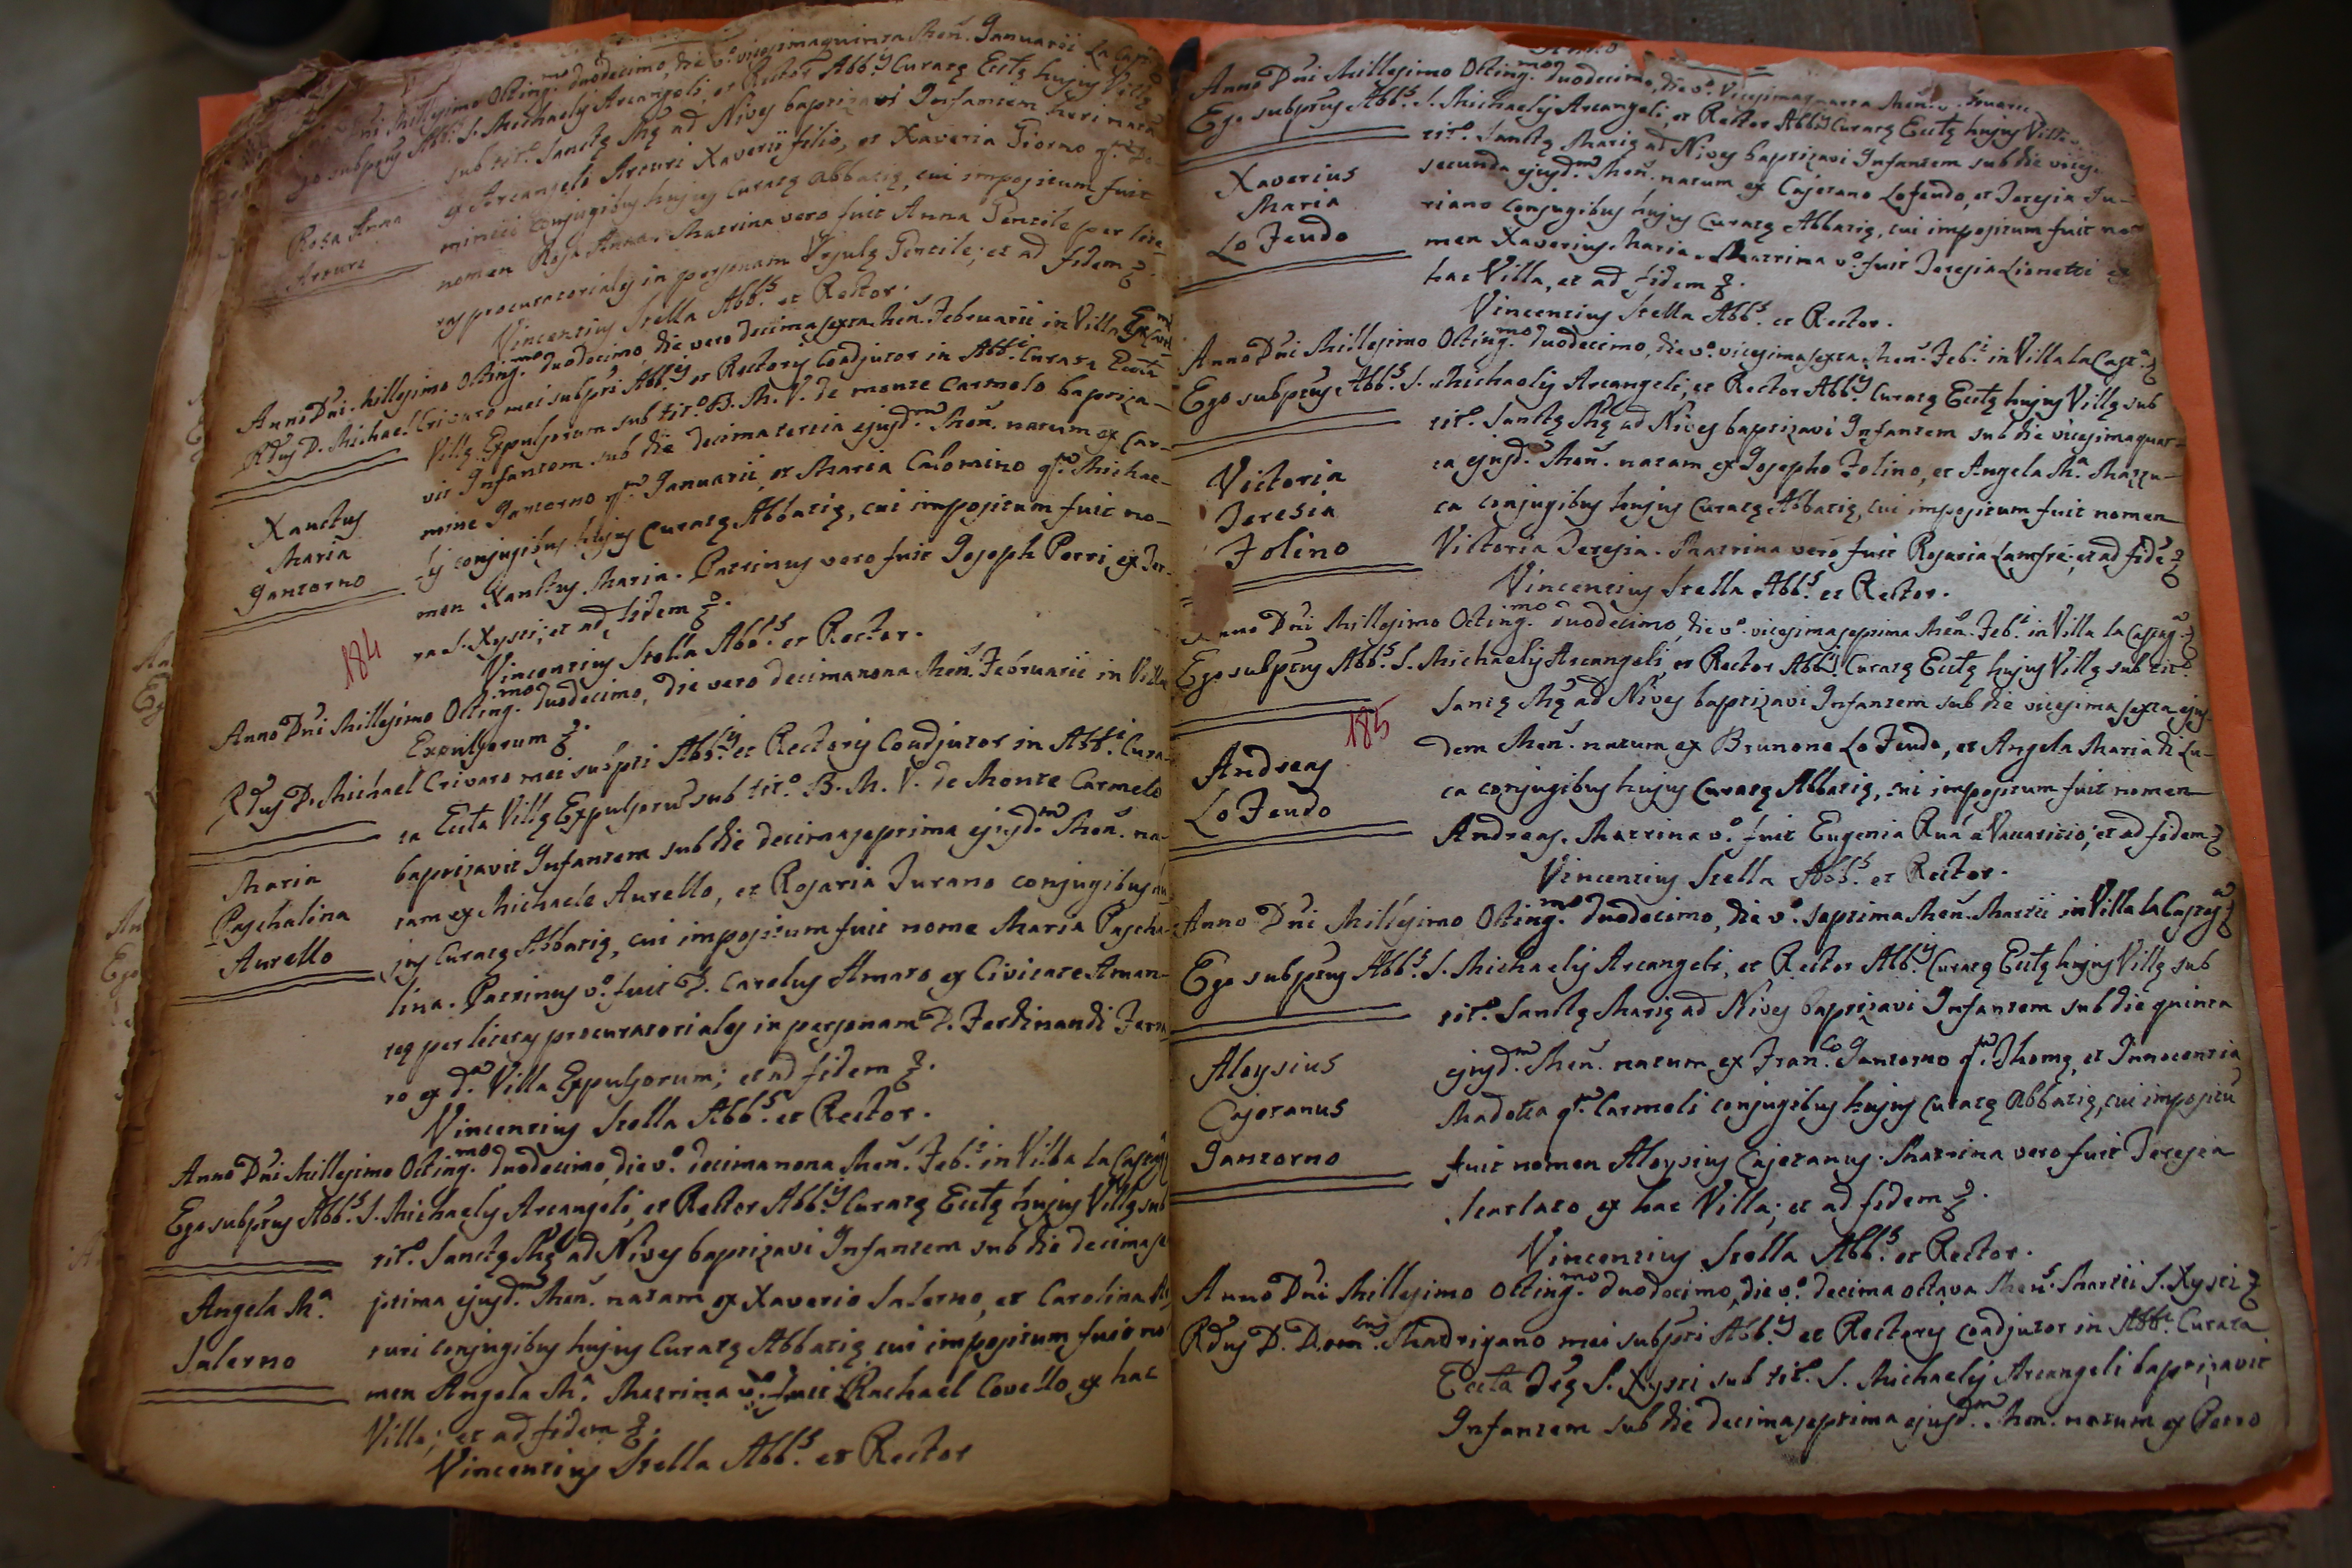 Dñi Millesimo Octing.mo duodecimo, die vo. vicesimaquinta Men. Januarii La Cast
subptus Abb.s S. Michaelis Arcangeli, et Rector Abb.ís Curatę Ecctę hujus Villę
sub titº. Sanctę Mę ad Nives baptizavi Infantem heri natã
Rosa Anna
Arturi
ex Arcangelo Arturi Xaverii filio, et Xaveria Giorno qm. Do
minici conjugibus hujus Curatę Abbatię, cui impositum fuit
nomen Rosa Anna. Matrina vero fuit Anna Gentile per lite
ras procuratorias in personam Ursulę Gentile; et ad fidem
Vincentius Stella Abb.s et Rector.
Anno Dñi. Millesimo Octing.mo duodecimo, die vero decimasexta Men. Februarii in Villa
Rdus D. Michael Crivaro mei subpti Abb.is et Rectoris Coadjutor in Abb.i Curata Eccta
Villę Expulsorum sub titº. B. M. V. de monte Carmelo baptiza-
vit Infantem sub die decimatertia ejusd.m Men. natum ex Car-
Xanctus
Maria
Jantorno
mine Jantorno qm. Januarii et Maria Calomino qm. Michae-
lis conjugibus hujus Curatę Abbatię, cui impositum fuit no-
men Xanctus Maria. Patrinus vero fuit Joseph Porri ex Ter-
ra S. Xysti; et ad fidem
184
Vincentius Stella Abb.s et Rector.
Anno Dñi Millesimo Octing.mo duodecimo, die vero decimanona Men. Februarii in Villa
Expulsorum
Rdus D. Michael Crivaro mei subpti Abb.is et Rectoris Coadjutor in Abb.i Cura-
ta Eccta Villę Expulsorũ sub titº. B. M. V. de Monte Carmelo
baptizavit Infantem sub die decimaseptima ejusd.m Men. na-
Maria
Paschalina
Aurello
tam ex Michaele Aurello, et Rosaria Turano conjugibus hu
jus Curatę Abbatię, cui impositum fuit nome Maria Pascha-
lina. Patrinus vº. fuit D. Carolus Amato ex Civitate Aman-
teę per literas procuratoriales in personam D. Ferdinandi Ferra
ro ex d.a Villa Expulsorum; et ad fidem
Vincentius Stella Abb.s et Rector.
Anno Dñi Millesimo Octing.mo duodecimo, die vº. decimanona Men. Feb.i in Villa la Castag
Ego subptus Abb.s S. Michaelis Arcangeli, et Rector Abb.is Curatę Ecctę hujus Villę sub
titº. Sanctę Mę ad Nives baptizavi Infantem sub die decimase
Angela Mª.
Salerno
ptima ejusd.m Men. natam ex Xaverio Salerno, et Carolina Ar
turi conjugibus hujus Curatę Abbatię cui impositum fuit no
men Angela Mª. Matrina vº. fuit Rachael Covello ex hac
Villa; et ad fidem
Vincentius Stella Abb.s et Rector
Anno Dñi Millesimo Octing.mo duodecimo, die vº. Vicesimaquarta Men.
Ego subptus Abb.s S. Michaelis Arcangeli, et Rector Abb.is Curatę Ecctę hujus Villę
titº. Sanctę Marię ad Nives baptizavi Infantem sub die vicesi
Xaverius
Maria
Lo Feudo
secunda ejusd.m Men. natum ex Cajetano Lofeudo, et Teresia Tu-
riano conjugibus hujus Curatę Abbatię, cui impositum fuit no
men Xaverius Maria. Matrina vº. fuit Teresia Lionetti ex
hac Villa, et ad fidem
Vincentius Stella Abb.s et Rector.
Anno Dñi Millesimo Octing.mo duodecimo, die vº. vicesimasexta Men. Feb.i in Villa la Cast.a
Ego subptus Abb.s S. Michaelis Arcangeli, et Rector Abb.is Curatę Ecctę hujus Villę sub
titº. Sanctę Mę ad Nives baptizavi Infantem sub die vicesimaquar-
Victoria
Teresia
Folino
ta ejusd.m Men. natam ex Josepho Folino, et Angela Mª. Mazzu-
ca conjugibus hujus Curatę Abbatię, cui impositum fuit nomen
Victoria Teresia. Matrina vero fuit Rosaria Lanfrè; et ad fidẽ
Vincentius Stella Abb.s et Rector.
Anno Dñi Millesimo Octing.mo duodecimo, die vº. vicesimaseptima Men. Feb.i in Villa la Castag.a
Ego subptus Abb.s S. Michaelis Arcangeli, et Rector Abb.is Curatę Ecctę hujus Villę sub titº.
Sanctę Mę ad Nives baptizavi Infantem sub die vicesimasexta ejus-
185
Andreas
Lo Feudo
dem Men. natum ex Brunone Lo Feudo, et Angela Maria di Lu-
ca conjugibus hujus Curatę Abbatię, cui impositum fuit nomen
Andreas. Matrina vº. fuit Eugenia Ruà a Vaccaritio; et ad fidem
Vincentius Stella Abb.s et Rector.
Anno Dñi Millesimo Octing.mo duodecimo, die vº. septima Men. Martii in Villa la Castag.a
Ego subptus Abb.s S. Michaelis Arcangeli, et Rector Abb.is Curatę Ecctę hujus Villę sub
titº. Sanctę Marię ad Nives baptizavi Infantem sub die quinta
Aloysius
Cajetanus
Jantorno
ejusd.m Men. natum ex Fran.co Jantorno qm. Thomę, et Innocentia
Madotta qm. Carmeli conjugibus hujus Curatę Abbatię, cui impositũ
fuit nomen Aloysius Cajetanus. Matrina vero fuit Teresia
Scarlato ex hac Villa; et ad fidem
Vincentius Stella Abb.s et Rector.
Anno Dñi Millesimo Octing.mo duodecimo, die vº. decima octava Mens. Martii S. Xysti
Rdus D. Dom.cus Madrigano mei subpti Abb.is et Rectoris Coadjutor in Abb.i Curata
Eccta Trę S. Xysti sub titº. S. Michaelis Arcangeli baptizavit
Infantem sub die decimaseptima ejusd.m Men. natum ex Petro